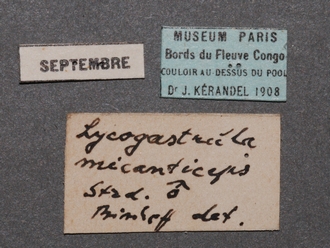 SEPTEMBRE
MUSEUM PARIS
Bords du Fleuve Congo
COULOIR AU-DESSUS DU POOL
Dr J. KÉRANDEL 1908
Lycogastrula
micanticeps
Strd. ♂
Bischoff det.